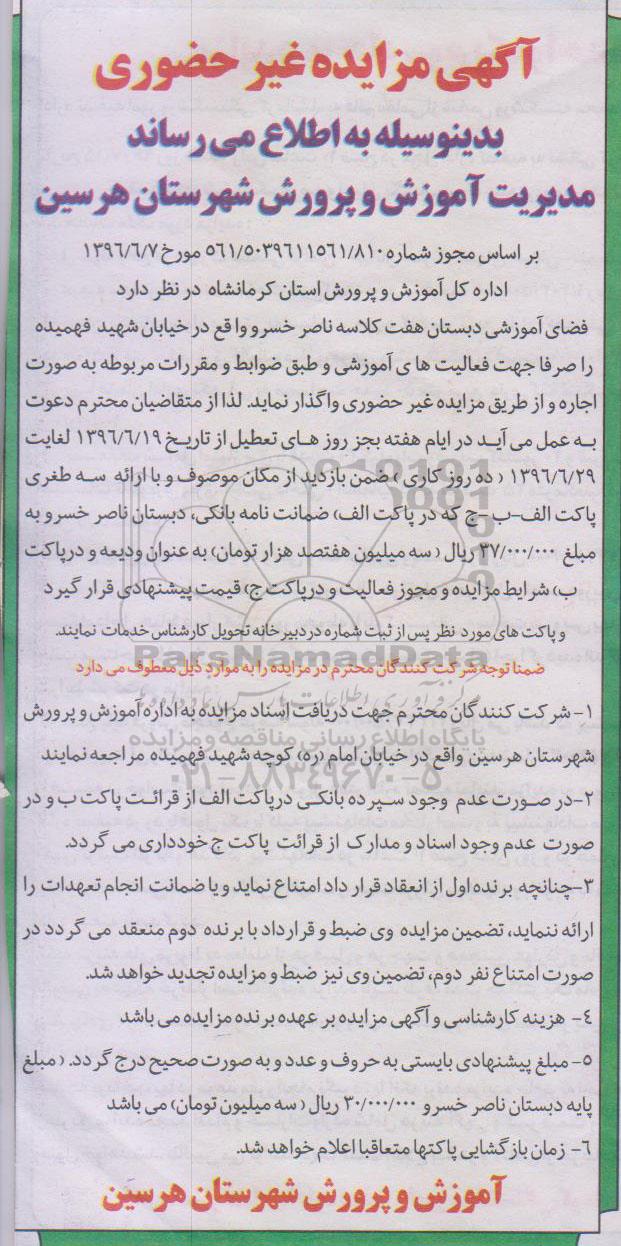 آگهی مزایده غیر حضوری
بدینوسیله به اطلاع می رساند
مدیریت آموزش و پرورش شهرستان هرسین
بر اساس مجوز شماره ۵۶۱/۵۰۳۹۶۱۱۵۶۱/۸۱۰ مورخ ۱۳۹۶/۶/۷
اداره کل آموزش و پرورش استان کرمانشاه در نظر دارد
فضای آموزشی دبستان هفت کلاسه ناصر خسرو واقع در خیابان شهید فهمیده
را صرفا جهت فعالیت های آموزشی و طبق ضوابط و مقررات مربوطه به صورت
اجاره و از طریق مزایده غیر حضوری واگذار نماید. لذا از متقاضیان محترم دعوت
به عمل می آید در ایام هفته بجز روز های تعطیل از تاریخ ۱۳۹۶/۶/۱۹ لغایت
۱۳۹۶/۶/۲۹ (ده روز کاری) ضمن بازدید از مکان موصوف و با ارائه سه طغری
پاکت الف-ب-ج که در پاکت الف) ضمانت نامه بانکی، دبستان ناصر خسرو به
مبلغ ۳۷/۰۰۰/۰۰۰ ریال (سه میلیون هفتصد هزار تومان) به عنوان ودیعه و درپاکت
ب) شرایط مزایده و مجوز فعالیت و درپاکت ج) قیمت پیشنهادی قرار گیرد
و پاکت های مورد نظر پس از ثبت شماره در دبیر خانه تحویل کارشناس خدمات نمایند.
ParsNamadData
ضمنا توجه شرکت کنندگان محترم در مزایده را به موارد ذیل معطوف می دارد
۱- شرکت کنندگان محترم جهت دریافت اسناد مزایده به اداره آموزش و پرورش
پایگاه اطلاع رسانی مناقصه و مزایده
شهرستان هرسین واقع در خیابان امام (ره) کوچه شهید فهمیده مراجعه نمایند
۰۲۱-۸۸۳۴۹۶۷۰-۵
۲-در صورت عدم وجود سپرده بانکی درپاکت الف از قرائت پاکت ب و در
صورت عدم وجود اسناد و مدارک از قرائت پاکت ج خودداری می گردد.
۳-چنانچه برنده اول از انعقاد قرار داد امتناع نماید و یا ضمانت انجام تعهدات را
ارائه ننماید، تضمین مزایده وی ضبط و قرارداد با برنده دوم منعقد می گردد در
صورت امتناع نفر دوم، تضمین وی نیز ضبط و مزایده تجدید خواهد شد.
۴- هزینه کارشناسی و آگهی مزایده بر عهده برنده مزایده می باشد
۵- مبلغ پیشنهادی بایستی به حروف و عدد و به صورت صحیح درج گردد. (مبلغ
پایه دبستان ناصر خسرو ۳۰/۰۰۰/۰۰۰ ریال (سه میلیون تومان) می باشد
۶- زمان بازگشایی پاکتها متعاقبا اعلام خواهد شد.
آموزش و پرورش شهرستان هرسین